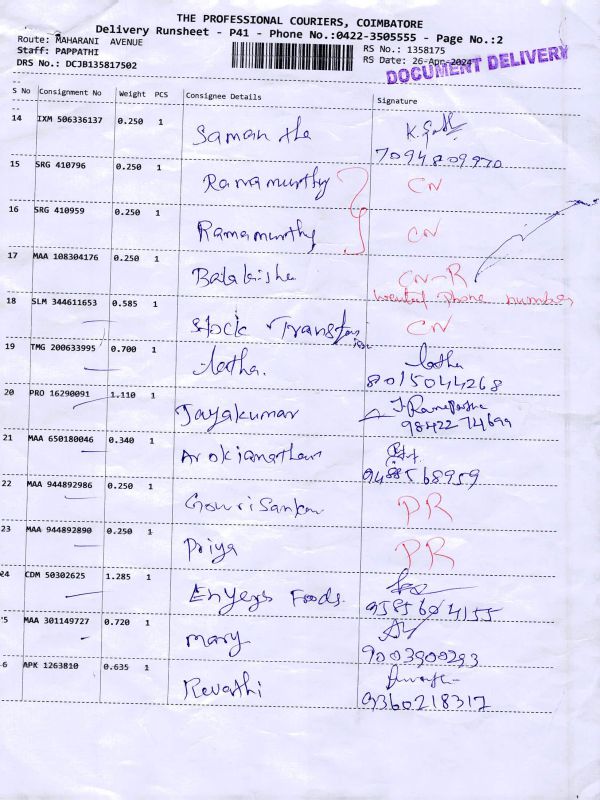 THE PROFESSIONAL COURIERS, COIMBATORE
Delivery Runsheet - P41 - Phone No.:0422-3505555 - Page No.:2
Route: MAHARANI AVENUE
Staff: PAPPATHI
DRS No.: DCJB135817502
RS No.: 1358175
RS Date: 26-Apr-2024
DOCUMENT DELIVERY
S No Consignment No Weight PCS Consignee Details Signature
14 IXM 506336137 0.250 1 Samantha
7094809970
15 SRG 410796 0.250 1 Ramamurthy CN
16 SRG 410959 0.250 1 Ramamurthy CN
17 MAA 108304176 0.250 1 CN-R
wanted phone number
18 SLM 344611653 0.585 1 Stock CN
19 TMG 200633995 0.700 1 latha. latha
8015044268
20 PRO 16290091 1.110 1 Jayakumar
9842274699
21 MAA 650180046 0.340 1
9488568959
22 MAA 944892986 0.250 1 Gowrisankar PR
23 MAA 944892890 0.250 1 Priya PR
24 CDM 50302625 1.285 1 Foods.
9585604155
5 MAA 301149727 0.720 1 mary
9003900293
6 APK 1263810 0.635 1 Revathi
9360218317